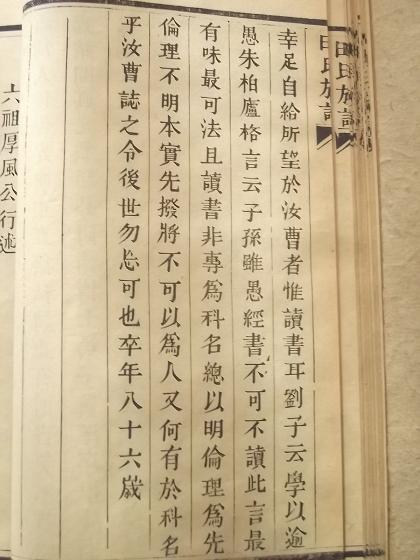 田氏族記
幸足自給所望於汝曹者惟讀書耳劉子云學以逾
愚朱柏廬格言云子孫雖愚經書不可不讀此言最
有味最可法且讀書非專為科名總以明倫理為先
倫理不明本實先撥將不可以為人又何有於科名
乎汝曹誌之令後世勿忘可也卒年八十六歲
六祖厚風公行述